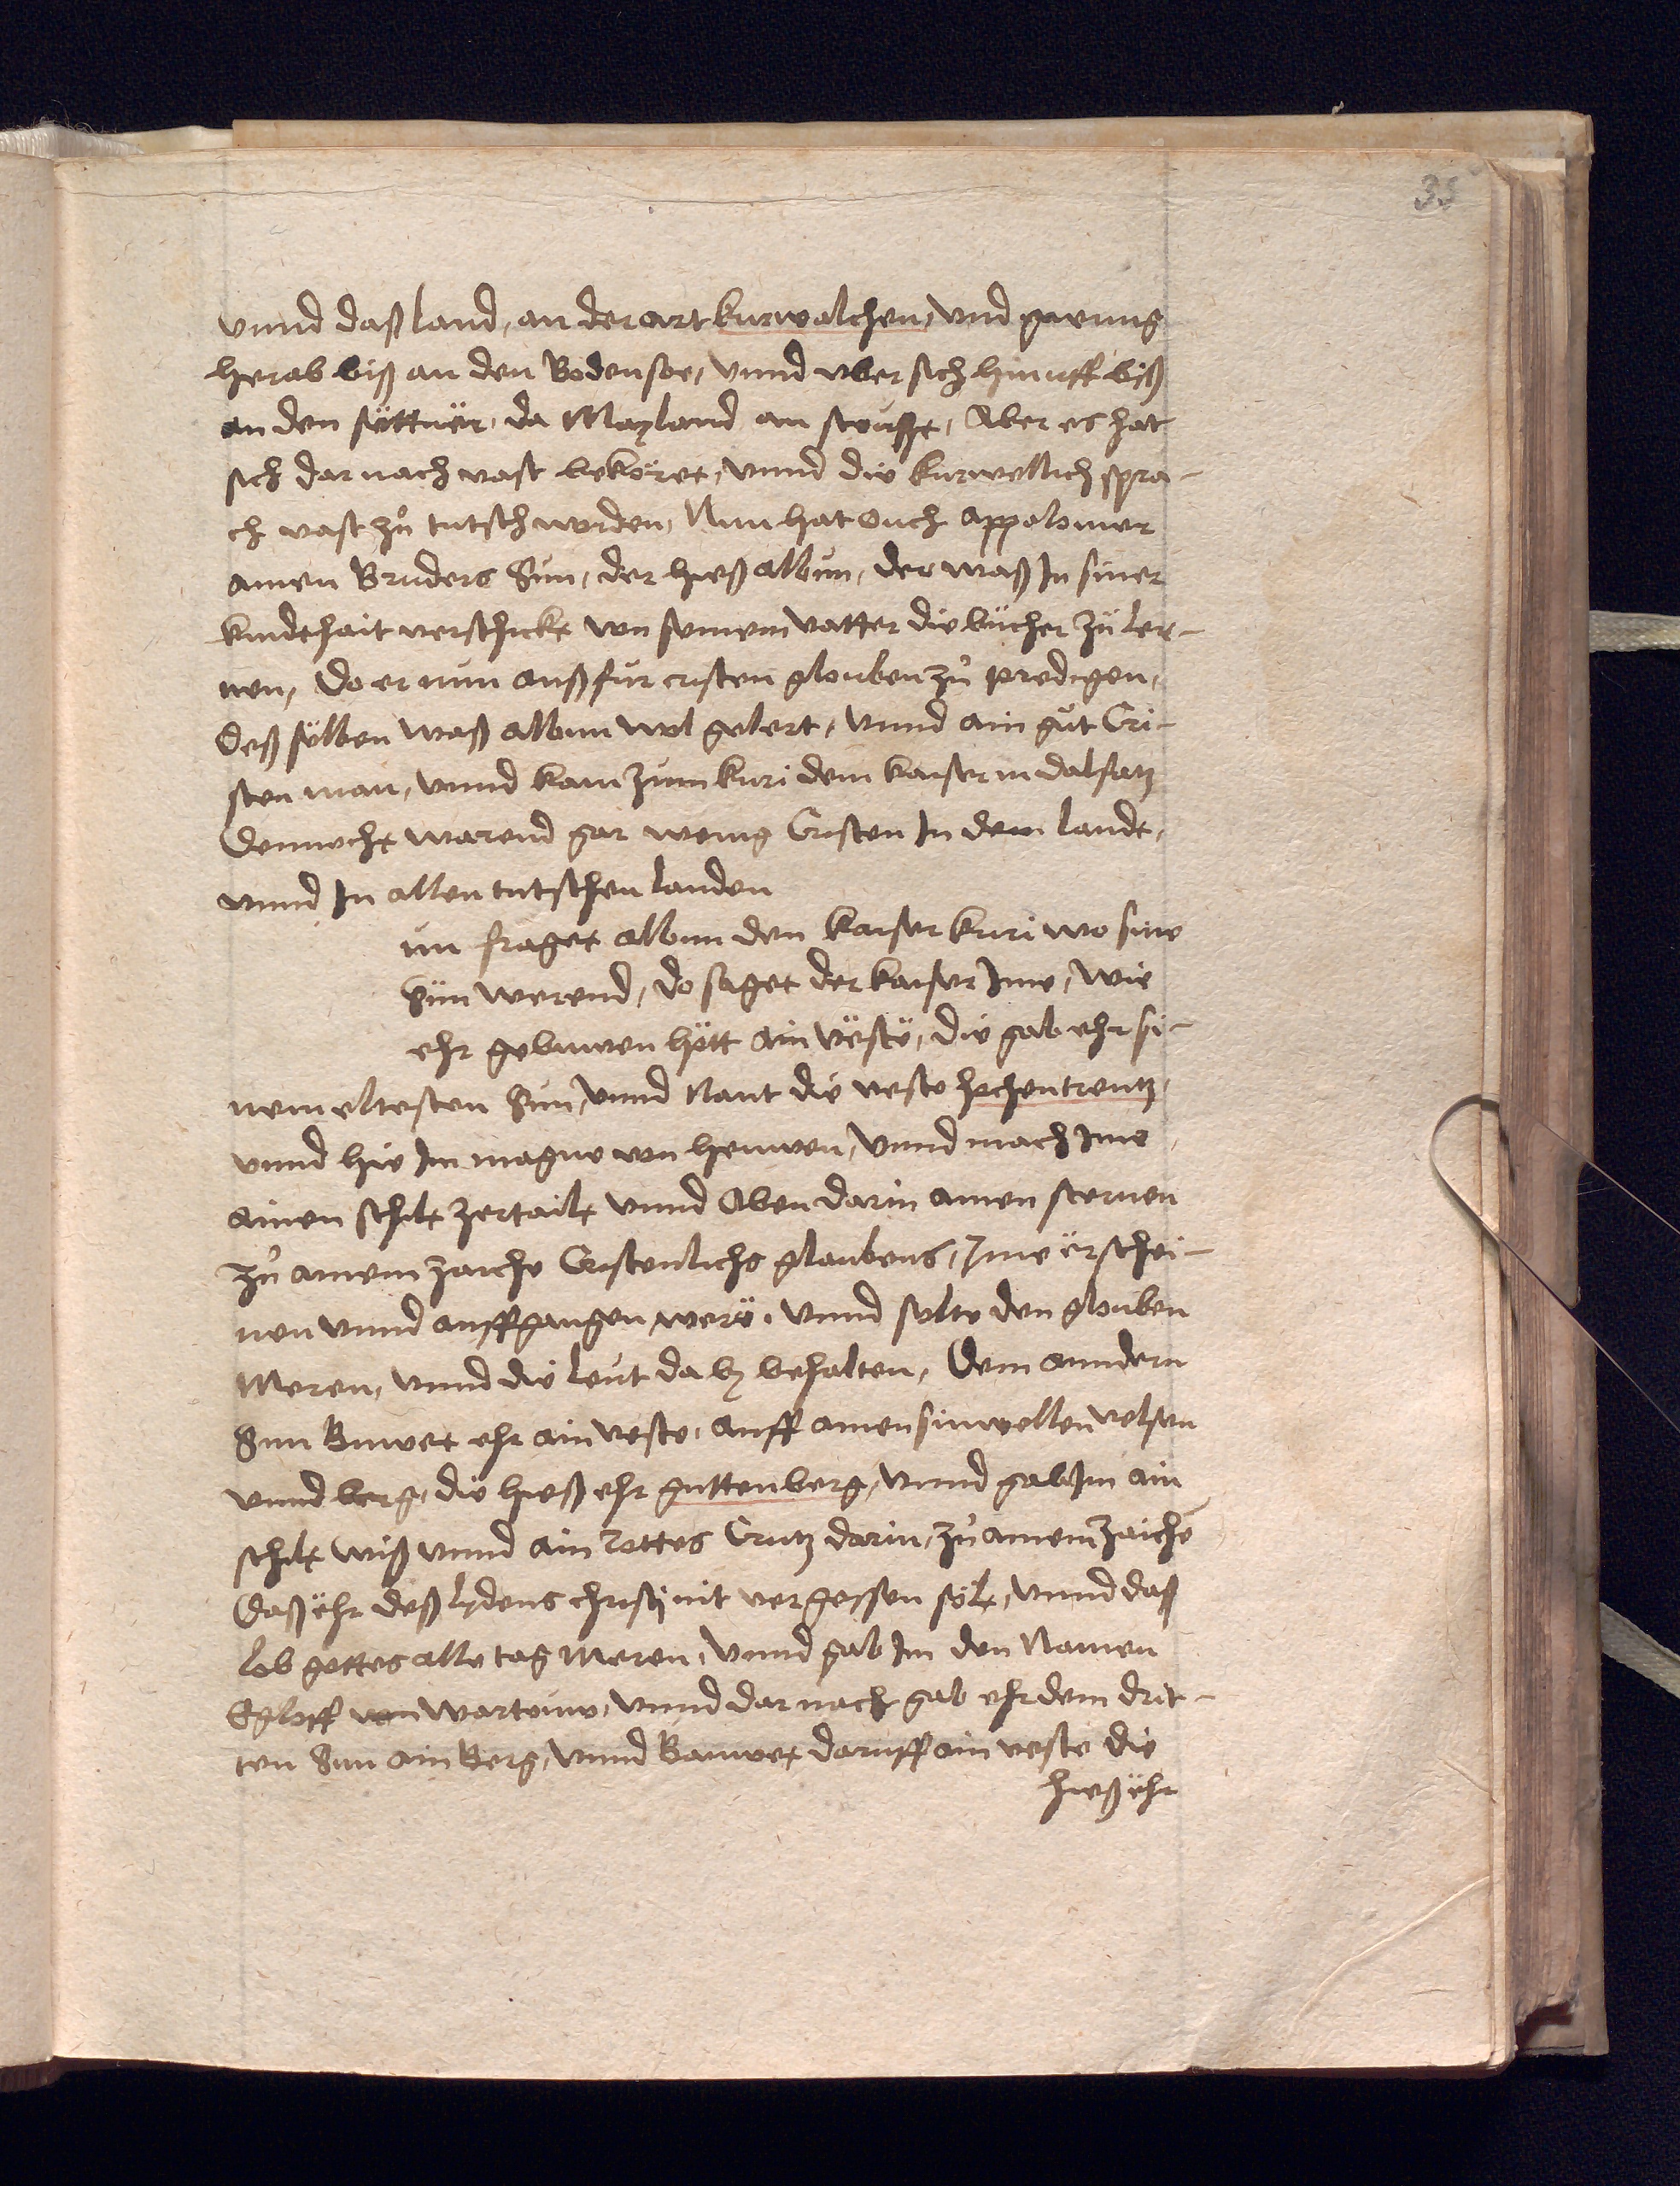 35
vnnd daß land, an der art kurwalchen, vnd gieng
herab biß an den Bodensee, vnnd vber sich hinuff biß
an den da Mayland an stoußt, Aber es hat
sich darnach vast beköret, vnnd die kurwellich spra-
ch vast zů tutsch worden, Nun hat ouch appolomer
ainen Bruders Sun, der hieß albun, der waß In siner
kindthait verschickt von seinem vatter die bücher zü ler-
nen, Do er nun auß für cristen glouben zů predigen,
deß sülben waß albun wol gelert, vnnd ain gůt Cri-
sten man, vnnd kam zum kuri dem kaiser in dalfatz
Dennocht warend gar wenig Cristen In dem landt,
vnnd In allen tutschen landen
un fraget albun den kaiser kuri wo sine
Sün werend, do saget der kaiser Ime, wie
ehr gebuwen hett ain vëste, die gab ehr si-
nem eltesten Sun, vnnd Nant die veste hochentreutz,
vnnd hie Im magne von heuwen, vnnd mach Ime
ainen schilt zertailt vnnd Oben darin ainen sternen
zů ainem zaiche Cristenlichs glaubens, Ime ërschei-
nen vnnd auffgangen, werë. vnnd solte den glouben
Meren, vnnd die leut da by behalten, Dem anndern
Sun Buwet ehr ain veste, auff ainen sinwellen velsen
vnnd berg, die hieß ehr guttenberg, vnnd gab Im ain
schilt wiß vnnd ain rottes Crutz darin, zů ainem zaiche
Daß ëhr deß lydens christi nit vergessen sölt, vnnd daß
lob gottes alle tag Meren, vnnd gab Im den Namen
Egloff von wartouw, vnnd darnach gab ehr dem drit-
ten Sun ain Berg, vnnd Bauwet daruff ain veste die
hieß ëhr